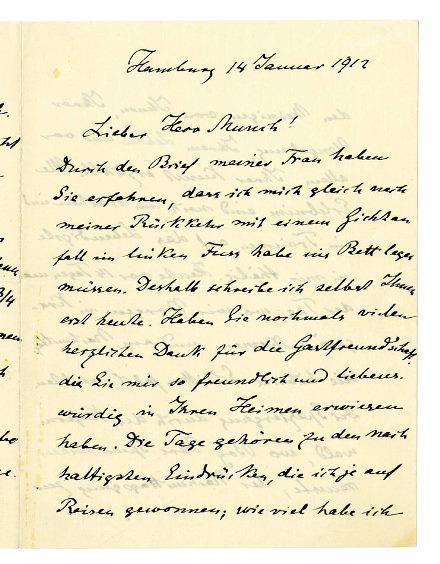 Hamburg 14 Januar 1912
Lieber Herr Munch!
Durch den Brief meiner Frau haben
Sie erfahren, dass ich mich gleich nach
meiner Rückkehr mit einem Gichtan
fall im linken Fuss habe ins Bett legen
müssen. Deshalb schreibe ich selbst Ihnen
erst heute. Haben Sie nochmals vielen
herzlichen Dank für die Gastfreundschaft,
die Sie mir so freundlich und liebens-
würdig in Ihren Heimen erwiesen
haben. Die Tage gehören zu den nach
haltigsten Eindrücken, die ich je auf
Reisen gewonnen; wie viel habe ich